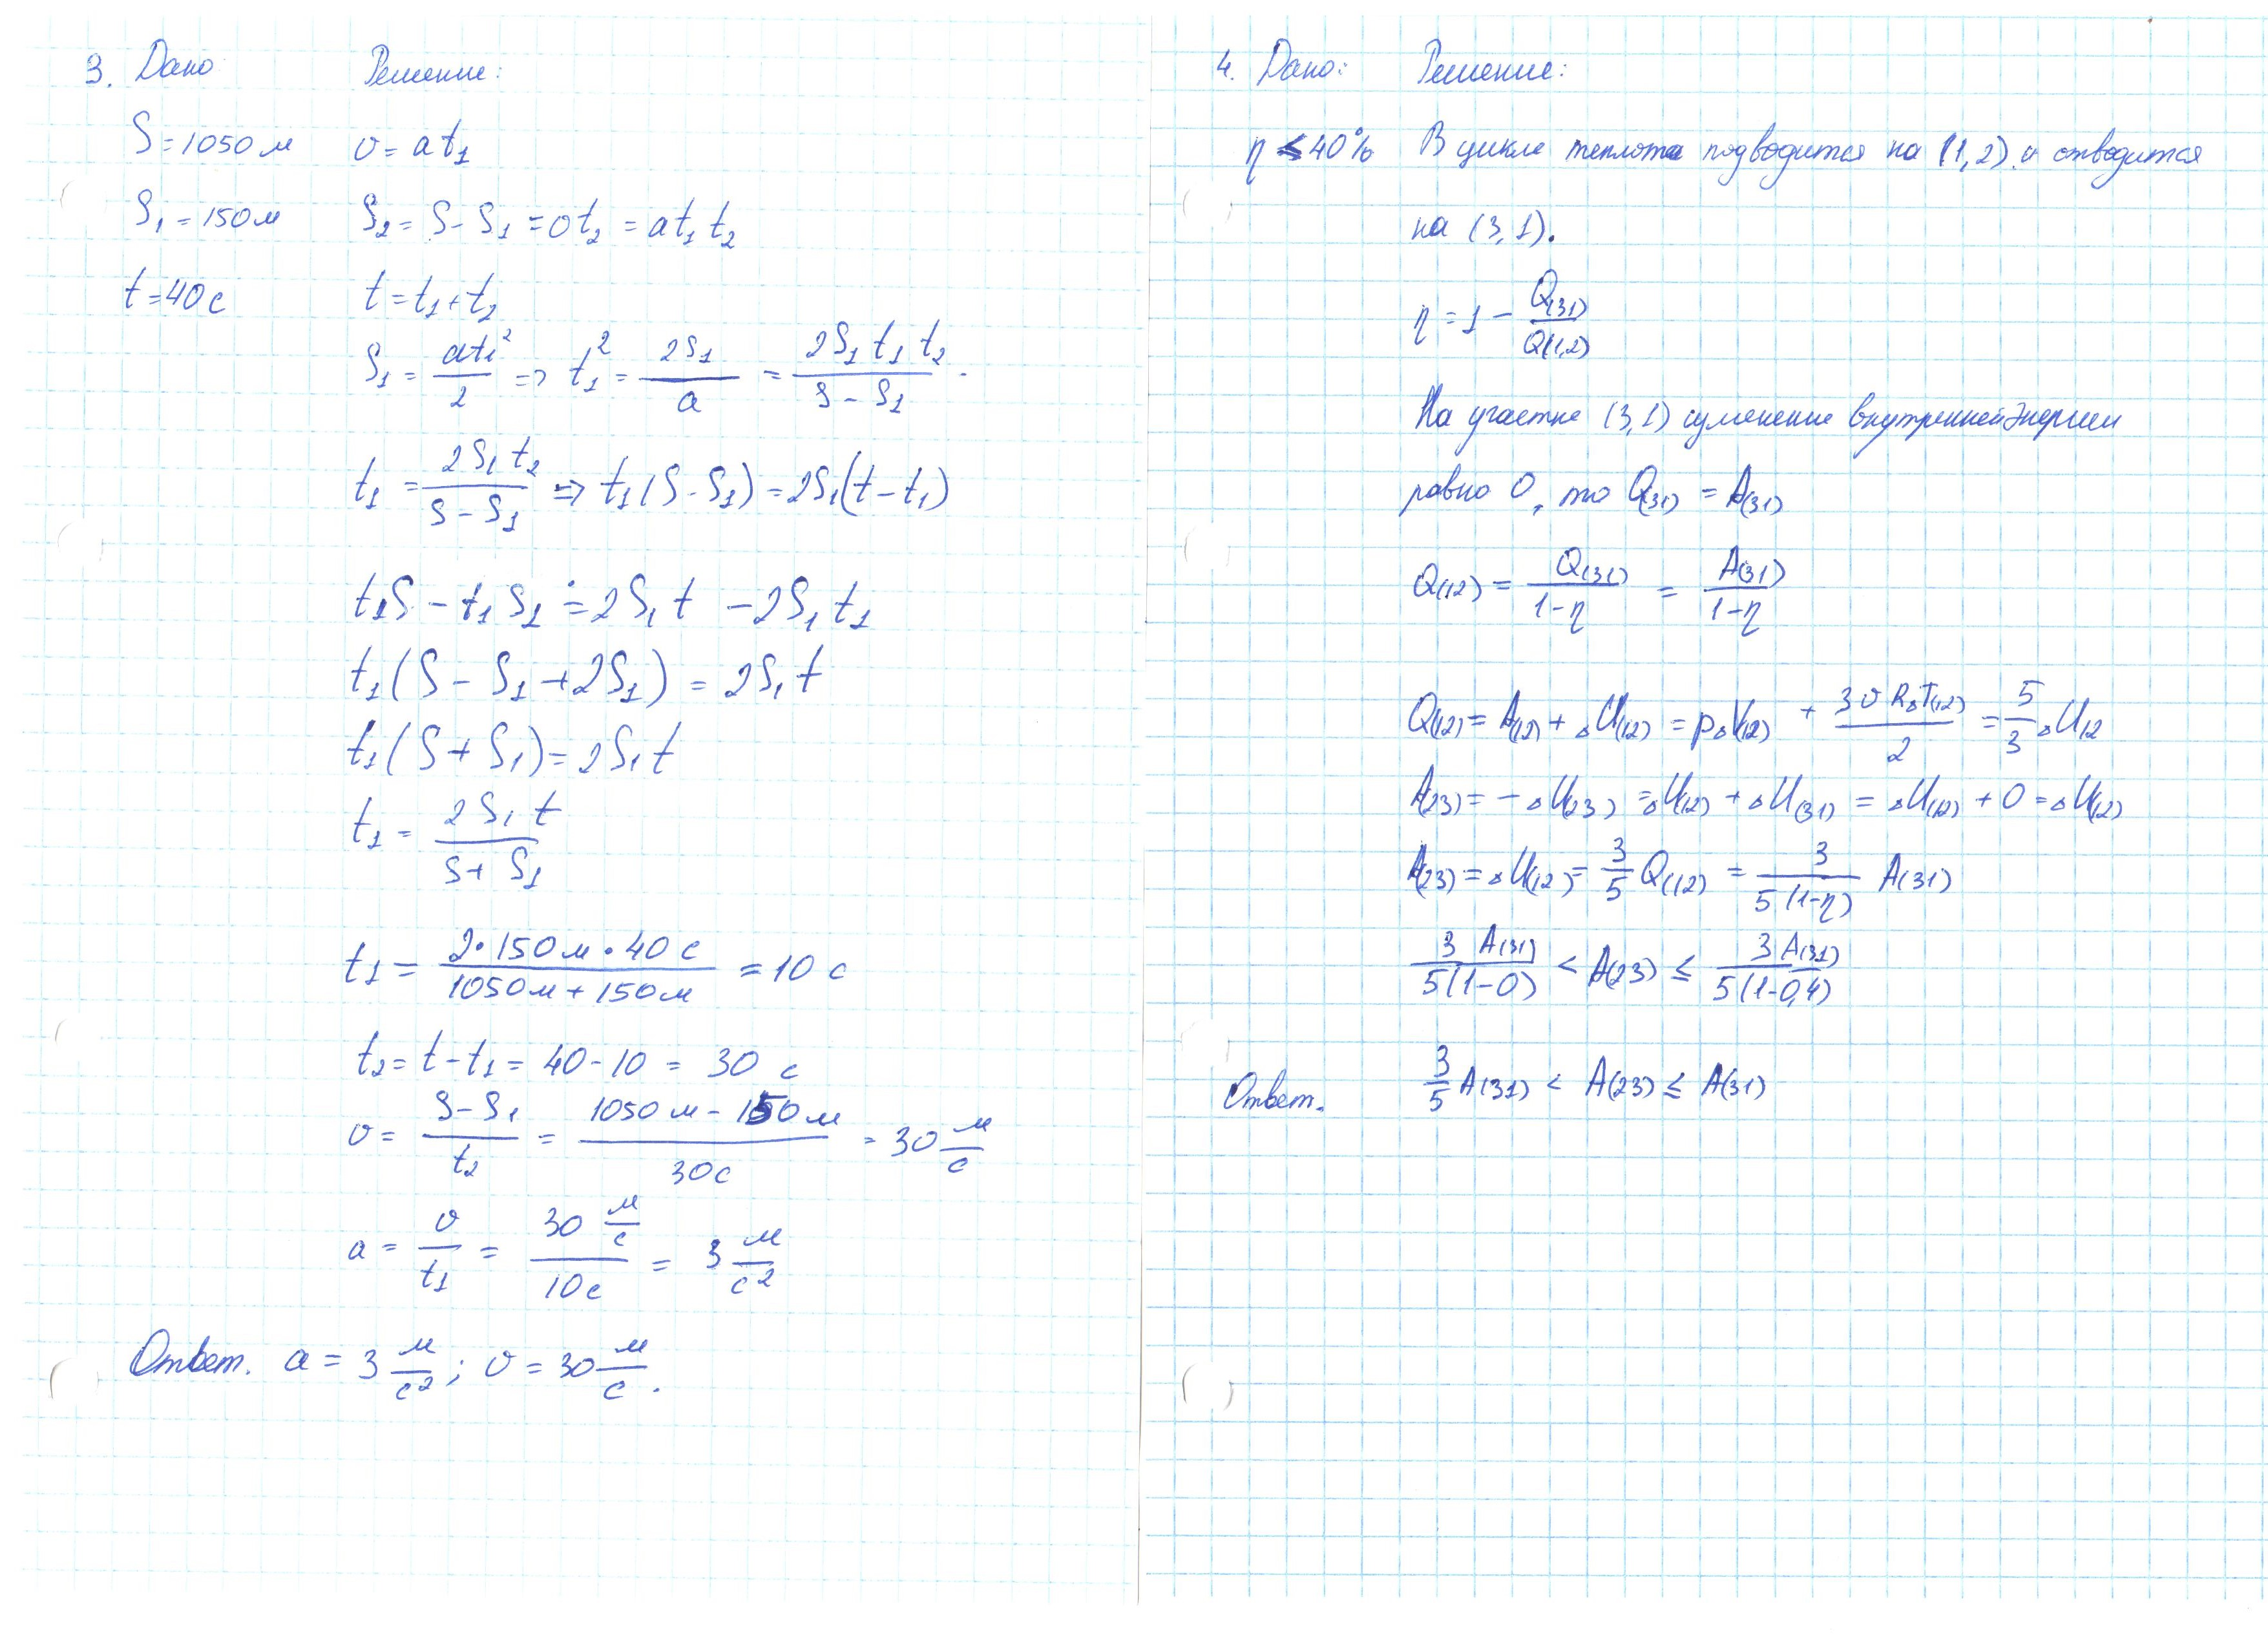 3. Дано
Решение:
S = 1050 м
υ = at₁
S₁ = 150 м
S₂ = S - S₁ = υt₂ = at₁t₂
t = 40 с
t = t₁ + t₂
S₁ = at₁²/2 => t₁² = 2S₁/a = 2S₁t₁t₂/(S - S₁)
t₁ = 2S₁t₂/(S - S₁) => t₁(S - S₁) = 2S₁(t - t₁)
t₁S - t₁S₁ = 2S₁t - 2S₁t₁
t₁(S - S₁ + 2S₁) = 2S₁t
t₁(S + S₁) = 2S₁t
t₁ = 2S₁t/(S + S₁)
t₁ = 2·150 м·40 с/(1050 м + 150 м) = 10 с
t₂ = t - t₁ = 40 - 10 = 30 с
υ = (S - S₁)/t₂ = (1050 м - 150 м)/30 с = 30 м/с
a = υ/t₁ = 30 м/с / 10 с = 3 м/с²
Ответ. a = 3 м/с²; υ = 30 м/с.
4. Дано:
Решение:
η ≤ 40%
В цикле теплота подводится на (1,2) и отводится
на (3,1).
η = 1 - Q(31)/Q(1,2)
На участке (3,1) изменение внутренней энергии
равно 0, то Q(31) = A(31)
Q(12) = Q(31)/(1-η) = A(31)/(1-η)
Q(12) = A(12) + ΔU(12) = pΔV(12) + 3υRΔT(12)/2 = 5/3 ΔU12
A(23) = -ΔU(23) = ΔU(12) + ΔU(31) = ΔU(12) + 0 = ΔU(12)
A(23) = ΔU(12) = 3/5 Q(12) = 3/(5(1-η)) A(31)
3 A(31)/(5(1-0)) < A(23) ≤ 3A(31)/(5(1-0,4))
Ответ. 3/5 A(31) < A(23) ≤ A(31)